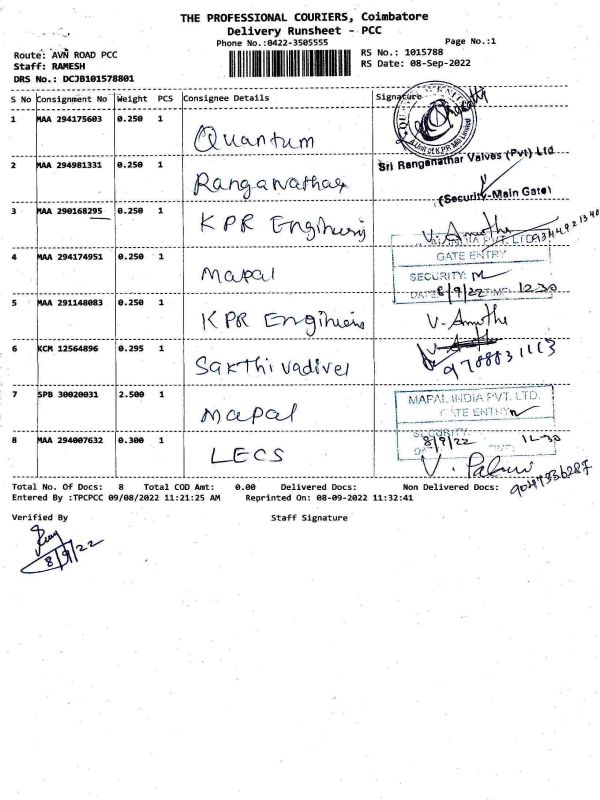 THE PROFESSIONAL COURIERS, Coimbatore
Delivery Runsheet - PCC
Phone No.:0422-3505555
Page No.:1
Route: AVN ROAD PCC
RS No.: 1015788
Staff: RAMESH
RS Date: 08-Sep-2022
DRS No.: DCJB101578801
S No Consignment No Weight PCS Consignee Details Signature
1 MAA 294175603 0.250 1 Quantum
2 MAA 294981331 0.250 1 Ranganathar
Sri Ranganathar Valves (Pvt) Ltd
(Security-Main Gate)
3 MAA 290168295 0.250 1 KPR Engineering
V. Amutha
4 MAA 294174951 0.250 1 Mapal
GATE ENTRY
SECURITY:
DATE: 8/9/22 TIME: 12-30
5 MAA 291148083 0.250 1 KPR Engineering
V-Amutha
6 KCM 12564896 0.295 1 Sakthivadivel
9788831113
7 SPB 30020031 2.500 1 Mapal
MAPAL INDIA PVT. LTD.
GATE ENTRY
SECURITY:
8/9/22
8 MAA 294007632 0.300 1 LECS
Total No. Of Docs: 8 Total COD Amt: 0.00 Delivered Docs: Non Delivered Docs:
Entered By :TPCPCC 09/08/2022 11:21:25 AM Reprinted On: 08-09-2022 11:32:41
Verified By Staff Signature
8/9/22